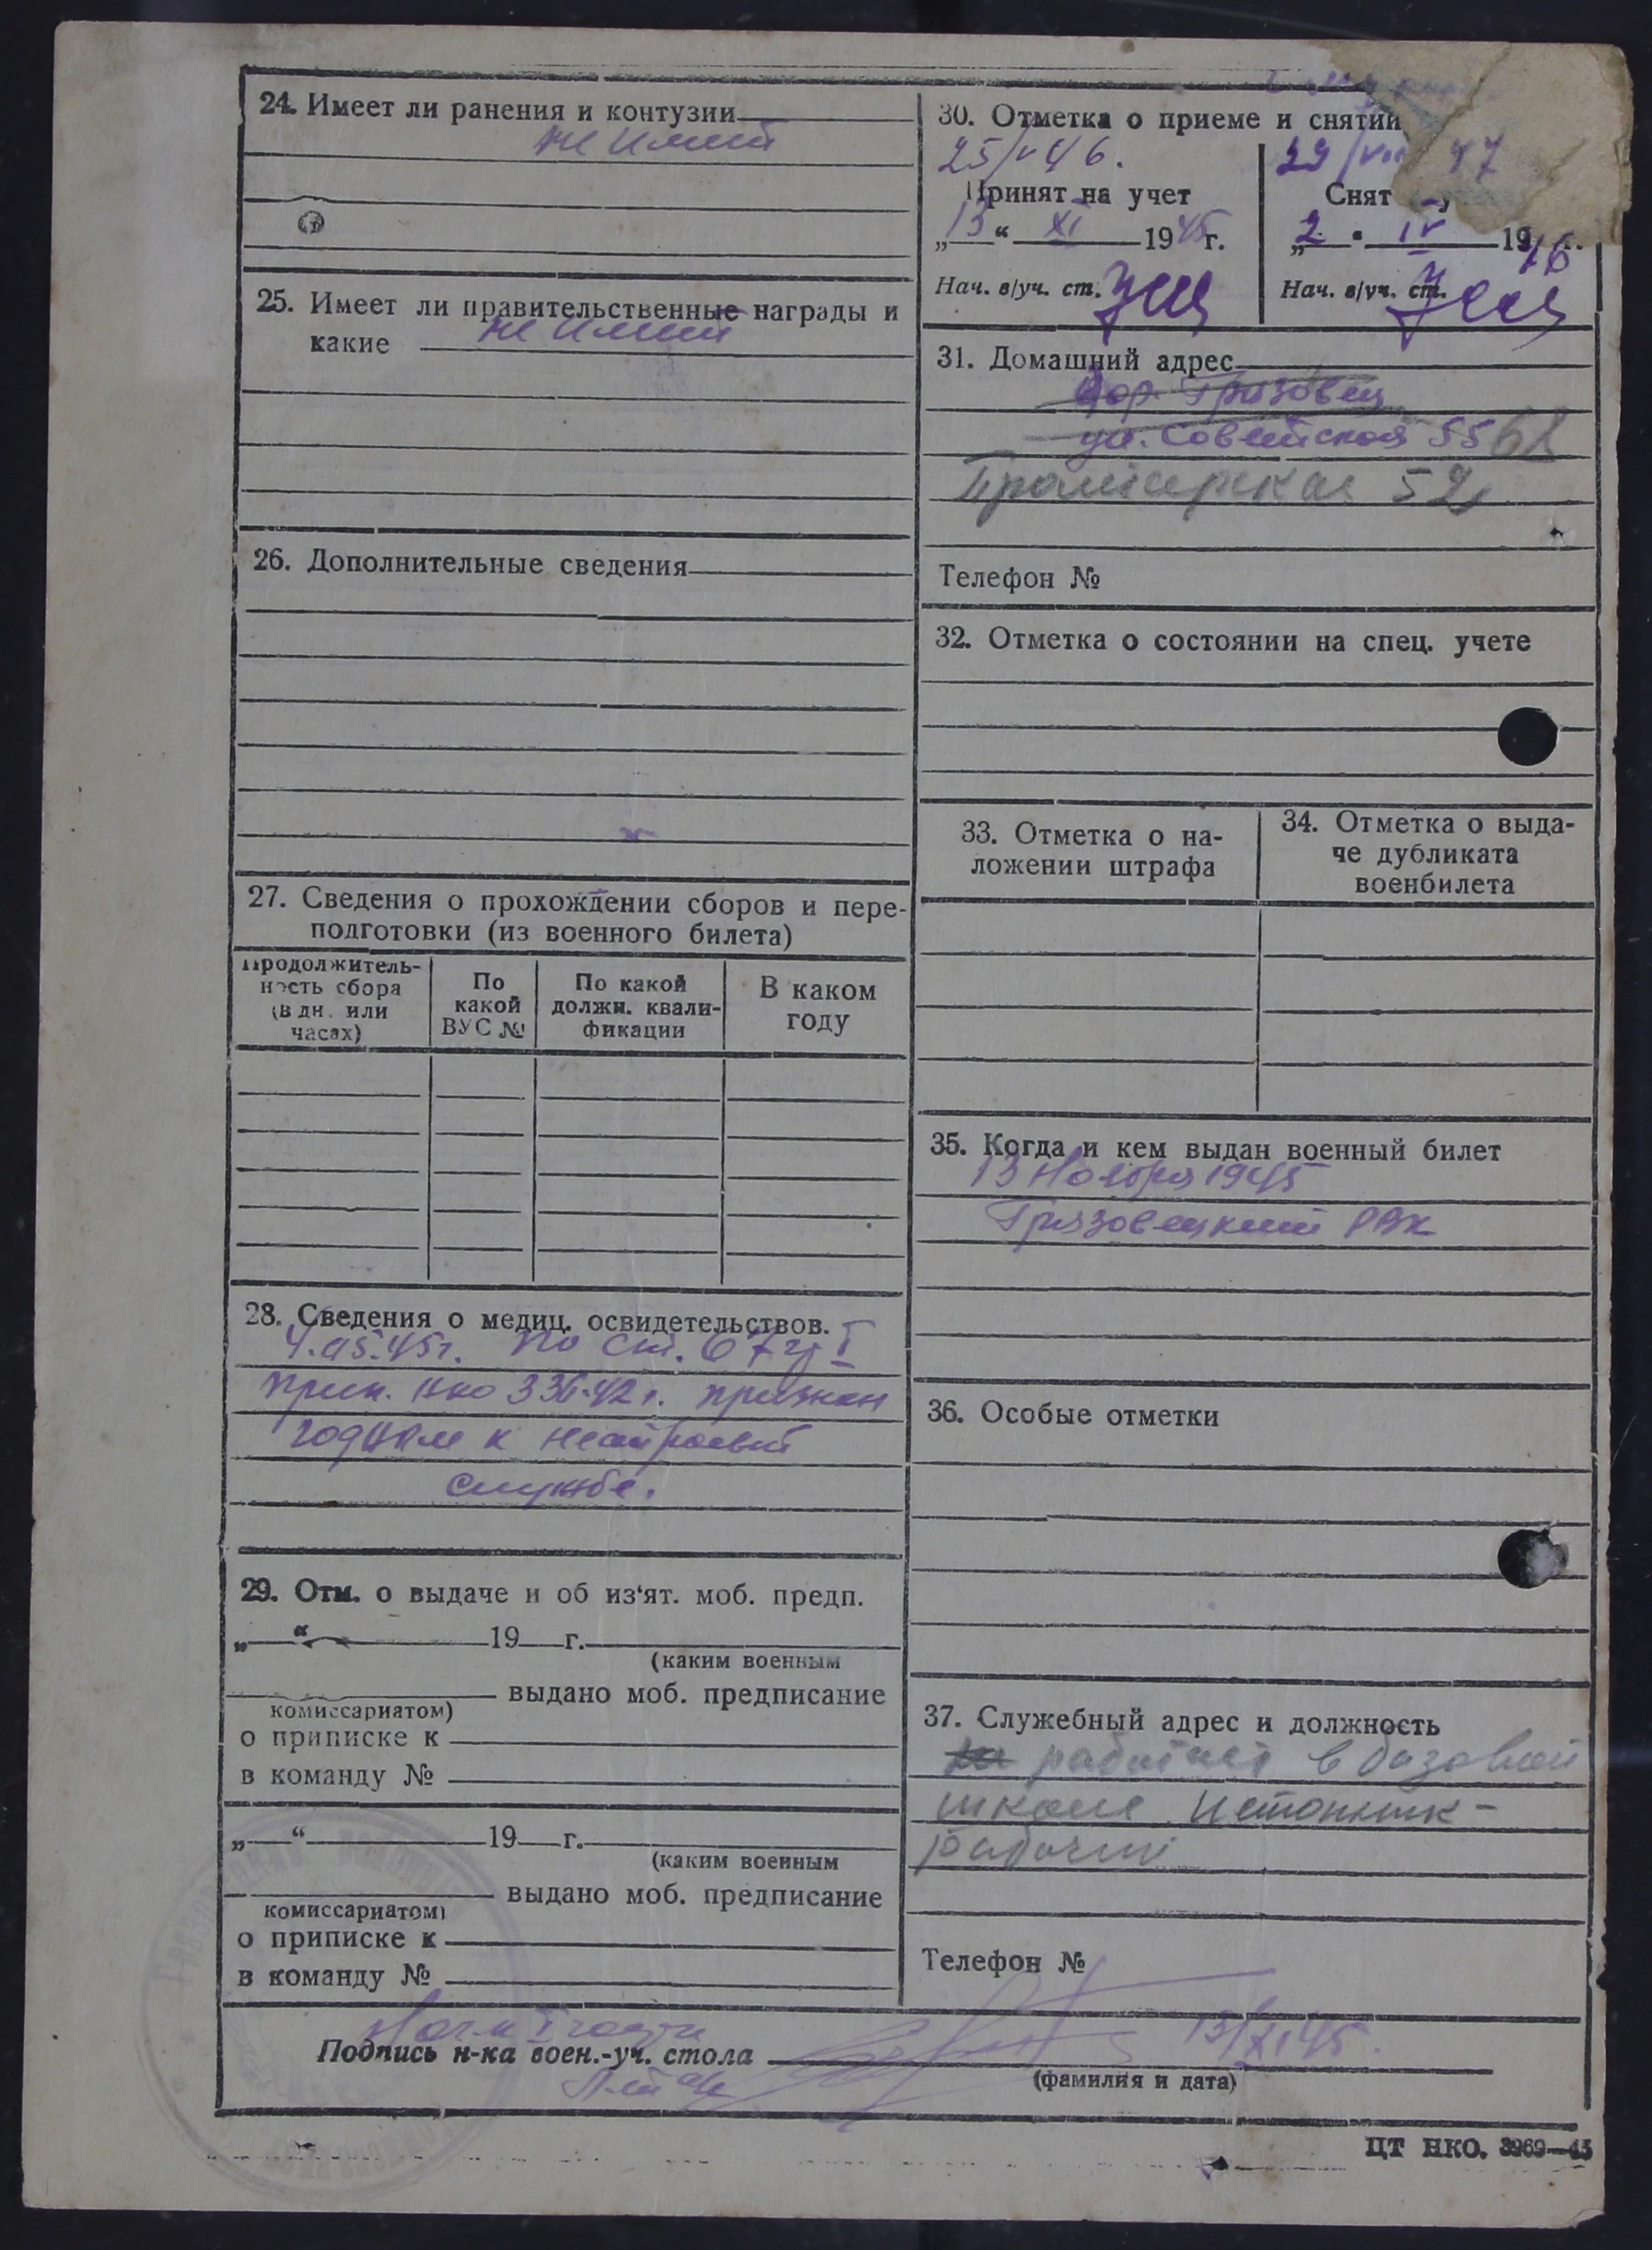 24. Имеет ли ранения и контузии
не имеет
25. Имеет ли правительственные награды и
какие не имеет
26. Дополнительные сведения
27. Сведения о прохождении сборов и пере-
подготовки (из военного билета)
Продолжитель-
ность сбора
(в дн. или
часах)
По
какой
ВУС №
По какой
должн. квали-
фикации
В каком
году
28. Сведения о медиц. освидетельствов.
по ст. 67 гр I
прик. НКО 336-42 г. признан
годным к нестроевой
службе.
29. Отм. о выдаче и об из‘ят. моб. предп.
„ “ 19 г.
(каким военным
выдано моб. предписание
комиссариатом)
о приписке к
в команду №
„ “ 19 г.
(каким военным
выдано моб. предписание
комиссариатом)
о приписке к
в команду №
30. Отметка о приеме и снятии
25/V 46.
Принят на учет
„13“ XI 1945г.
Нач. в/уч. ст.
29/VIII 47
Снят
„2“ IV 1946
Нач. в/уч. ст.
31. Домашний адрес
гор. Грязовец
ул. Советская 55 62
Пролетарская 52
Телефон №
32. Отметка о состоянии на спец. учете
33. Отметка о на-
ложении штрафа
34. Отметка о выда-
че дубликата
военбилета
35. Когда и кем выдан военный билет
13 Ноября 1945
Грязовецкий РВК
36. Особые отметки
37. Служебный адрес и должность
работает в базовой
школе Истопник-
рабочий
Телефон №
Подпись н-ка воен.-уч. стола 13/XI 45.
(фамилия и дата)
ЦТ НКО. 3969—45